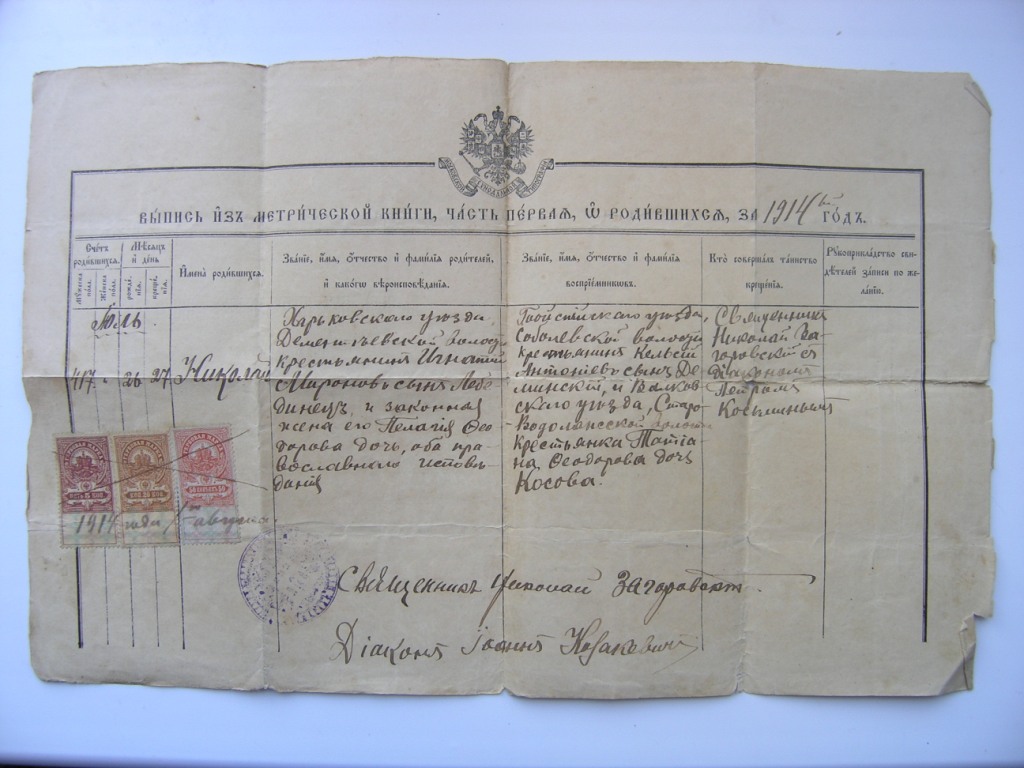 Вы́пись и҆зъ метри́ческой кни́ги, ча́сть пе́рвая, ѡ҆ роди́вшихсѧ, за 1914 го́дъ.
Счетъ роди́вшихсѧ.
Мѣ́сѧцъ и҆ де́нь
Мꙋжеска пола.
Женска пола.
рожде́нїѧ.
креще́нїѧ.
И҆мена̀ роди́вшихсѧ.
Зва́нїе, и҆́мѧ, ѻ҆́тчество и҆ фами́лїѧ роди́телей,
и҆ како́гѡ вѣроисповѣ́данїѧ.
Зва́нїе, и҆́мѧ, ѻ҆́тчество и҆ фами́лїѧ
воспрїе́мникѡвъ.
Кто̀ соверша́лъ та́инство
креще́нїѧ.
Рꙋкоприкла́дство сви-
дѣ́телей за́писи по же-
ла́нїю.
Июль
417.
26.
27.
Николай
Харьковскаго уѣзда,
крестьянинъ Игнатій
Мироновъ сынъ Лебе-
динецъ, и законная
жена его Пелагія Ѳео-
дорова дочь, оба пра-
вославнаго исповѣ-
данія
уѣзда,
Соболевской волости
крестьянинъ
Антоніевъ сынъ Де-
минскій, и Валков-
скаго уѣзда, Старо-
Водолажской волости
крестьянка Татіа-
на Ѳеодорова дочь
Косова.
Священникъ
Николай За-
горовскій съ
Діакономъ
Петромъ
Косьминымъ
1914 года 1 августа
Священникъ Николай Загоровскій
Діаконъ Іоаннъ Козакевичъ